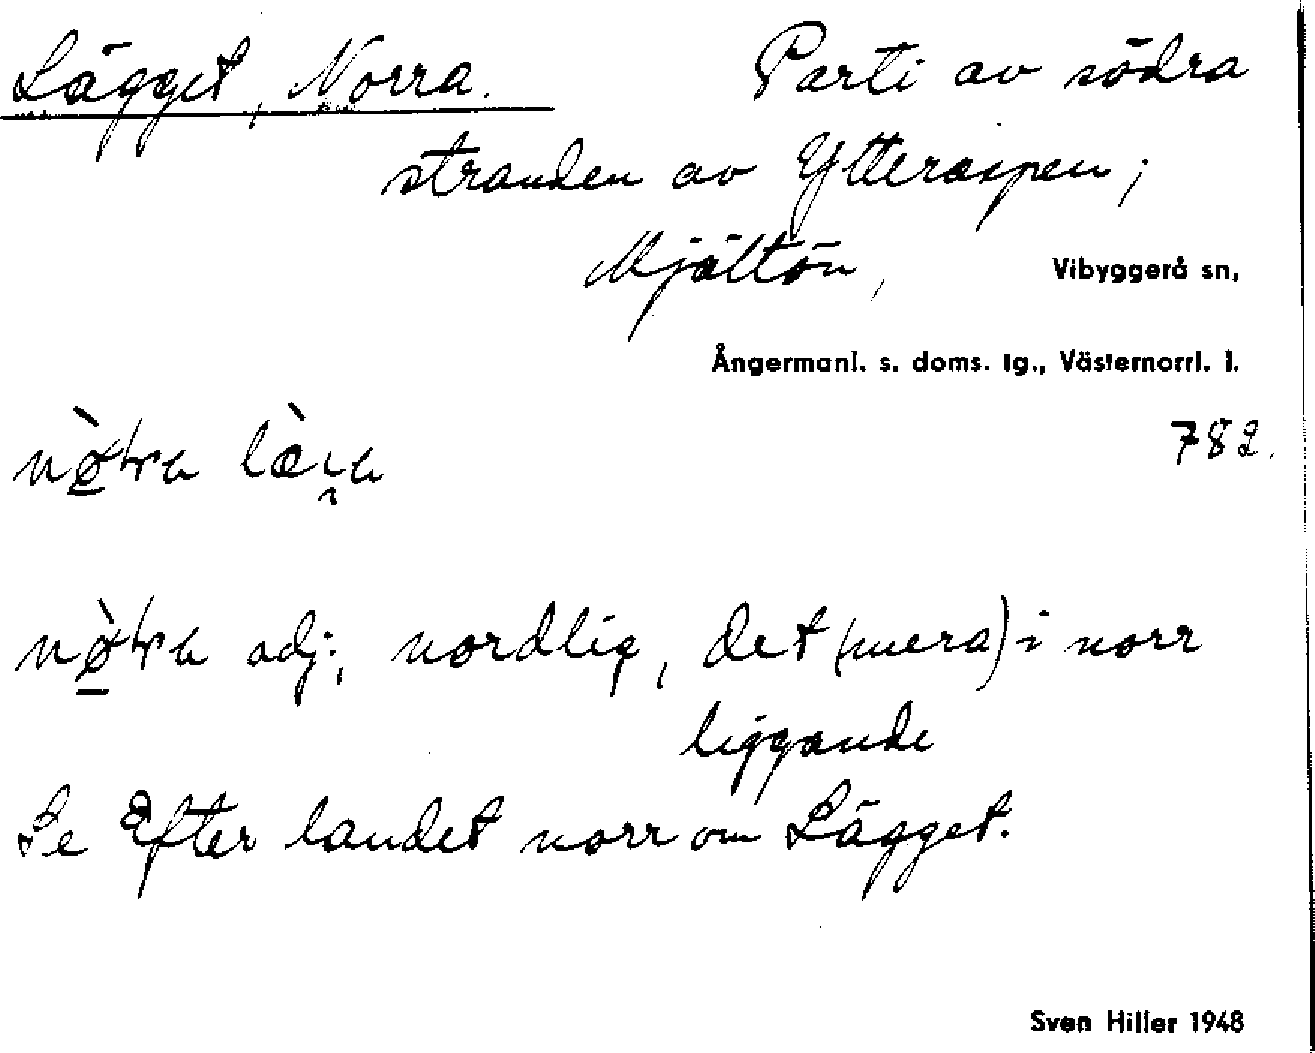 Lägget, Norra. Parti av södra
stranden av Ytteraspen;
Mjältön, Vibyggerå sn,
Ångermanl. s. doms. tg., Västernorrl. l.
782.
adj:, nordlig, det (mera) i norr
liggande
Se Efter landet norr om Lägget.
Sven Hiller 1948